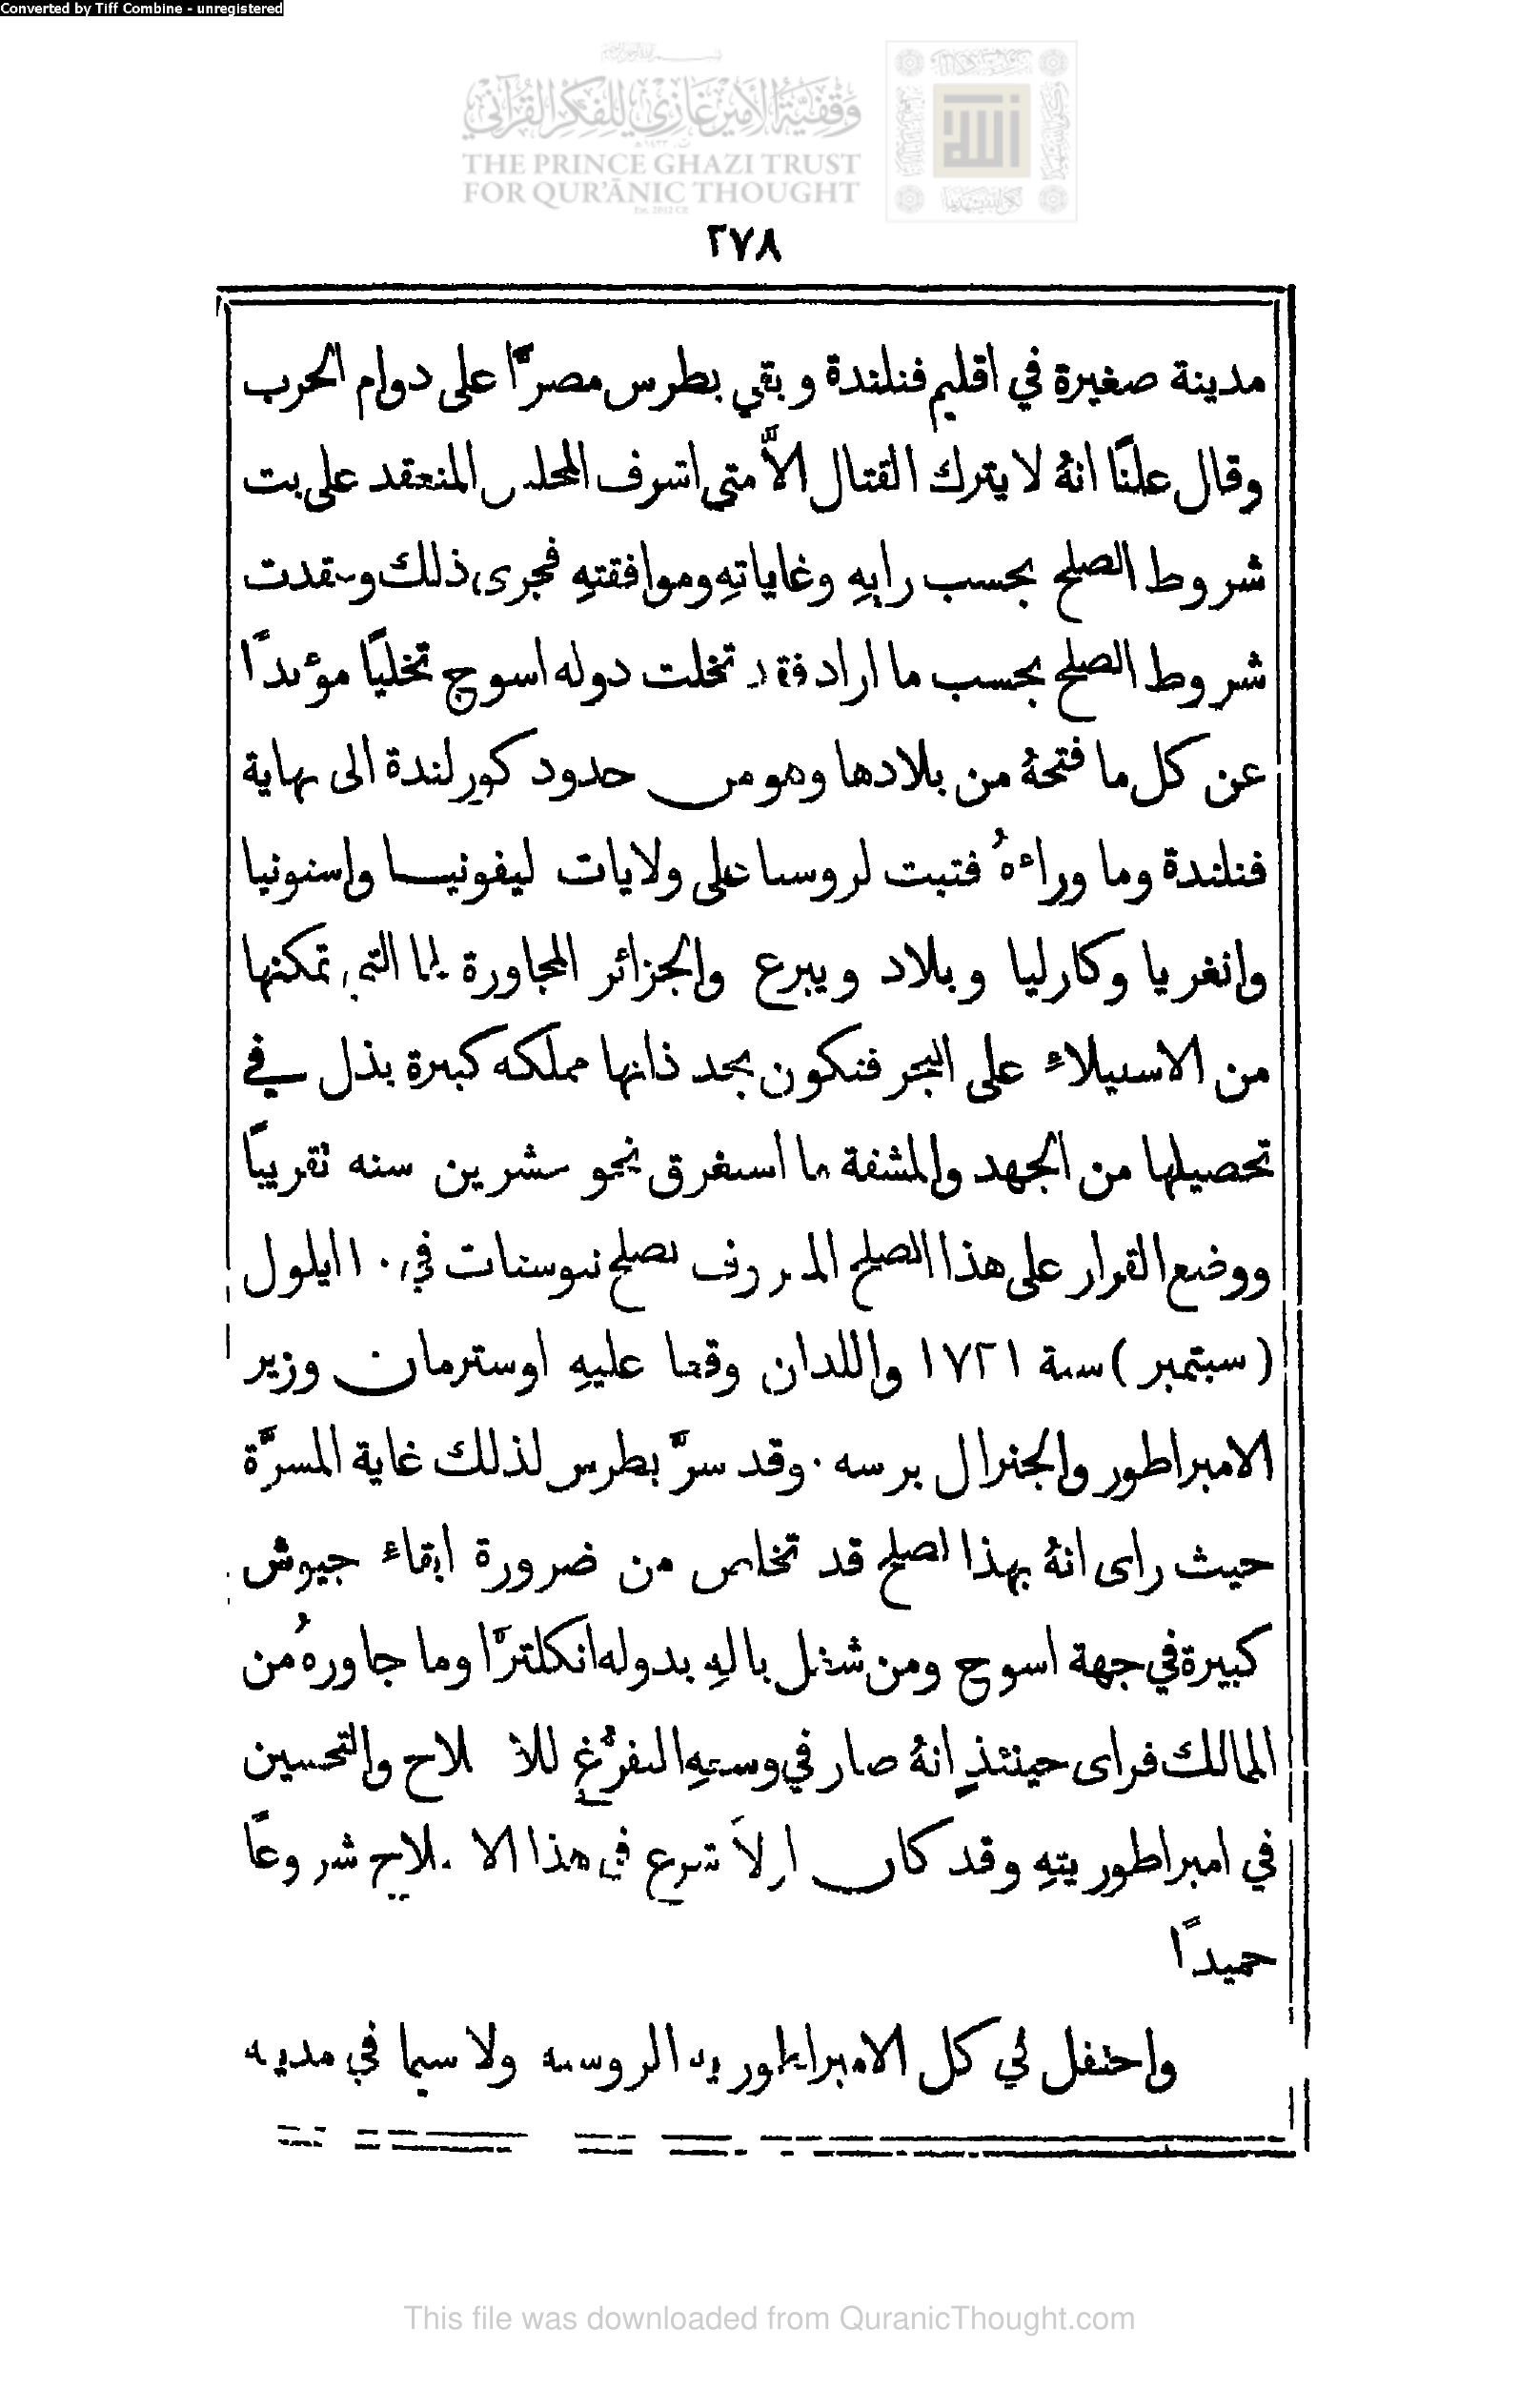 Converted by Tiff Combine - unregistered
وقفية الأمير غازي للفكر القرآني
THE PRINCE GHAZI TRUST
FOR QUR'ĀNIC THOUGHT
٢٧٨
مدينة صغيرة في اقليم فنلندة وبقي بطرس مصرًّا على دوام الحرب
وقال علنًا انهُ لا يترك القتال الاَّ متى اشرف المجلس المنعقد على بت
شروط الصلح بحسب رايهِ وغاياتهِ وموافقتهِ فجرى ذلك وعقدت
شروط الصلح بحسب ما اراد فقد تخلت دولة اسوج تخليًا مؤبدًا
عن كل ما فتحهُ من بلادها وهو من حدود كورلندة الى نهاية
فنلندة وما وراءهُ فتبت لروسيا على ولايات ليفونيا واستونيا
وانغريا وكارليا وبلاد ويبرع والجزائر المجاورة لها التي تمكنها
من الاستيلاء على البحر فتكون بحد ذاتها مملكة كبيرة بذل في
تحصيلها من الجهد والمشقة ما استغرق نحو عشرين سنة تقريبًا
ووضع القرار على هذا الصلح المعروف بصلح نيوستات في ١٠ ايلول
(سبتمبر) سنة ١٧٢١ واللذان وقعا عليهِ اوسترمان وزير
الامبراطور والجنرال برسه . وقد سرَّ بطرس لذلك غاية المسرَّة
حيث راى انهُ بهذا الصلح قد تخلص من ضرورة ابقاء جيوش
كبيرة في جهة اسوج ومن شغل بالهِ بدولة انكلترَّا وما جاورهُ من
الممالك فراى حينئذٍ انهُ صار في وسعهِ التفرُّغ للاصلاح والتحسين
في امبراطوريتهِ وقد كان اولاً شرع في هذا الاصلاح شروعًا
حميدًا
واحتفل في كل الامبراطورية الروسية ولا سيما في مدينة
This file was downloaded from QuranicThought.com